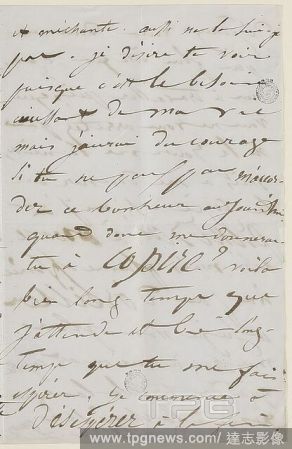 et méchante. aussi ne le suis-je
pas. je désire te voir
puisque c'est le besoin
incessant de ma vie
mais j'aurai du courage
si tu ne peux pas m'accor-
der ce bonheur aujourd'hui
quand donc me donneras-
tu à copire? voilà
bien long-temps que
j'attends et bien long-
temps que tu me fais
espérer. Je commence à
désespérer à la fin
TPG
www.tpgnews.com / 達志影像